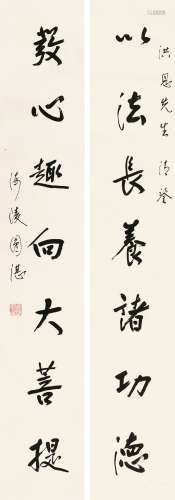 洪恩先生清鉴
以法長養諸功德
發心趣向大菩提
海陵圓湛